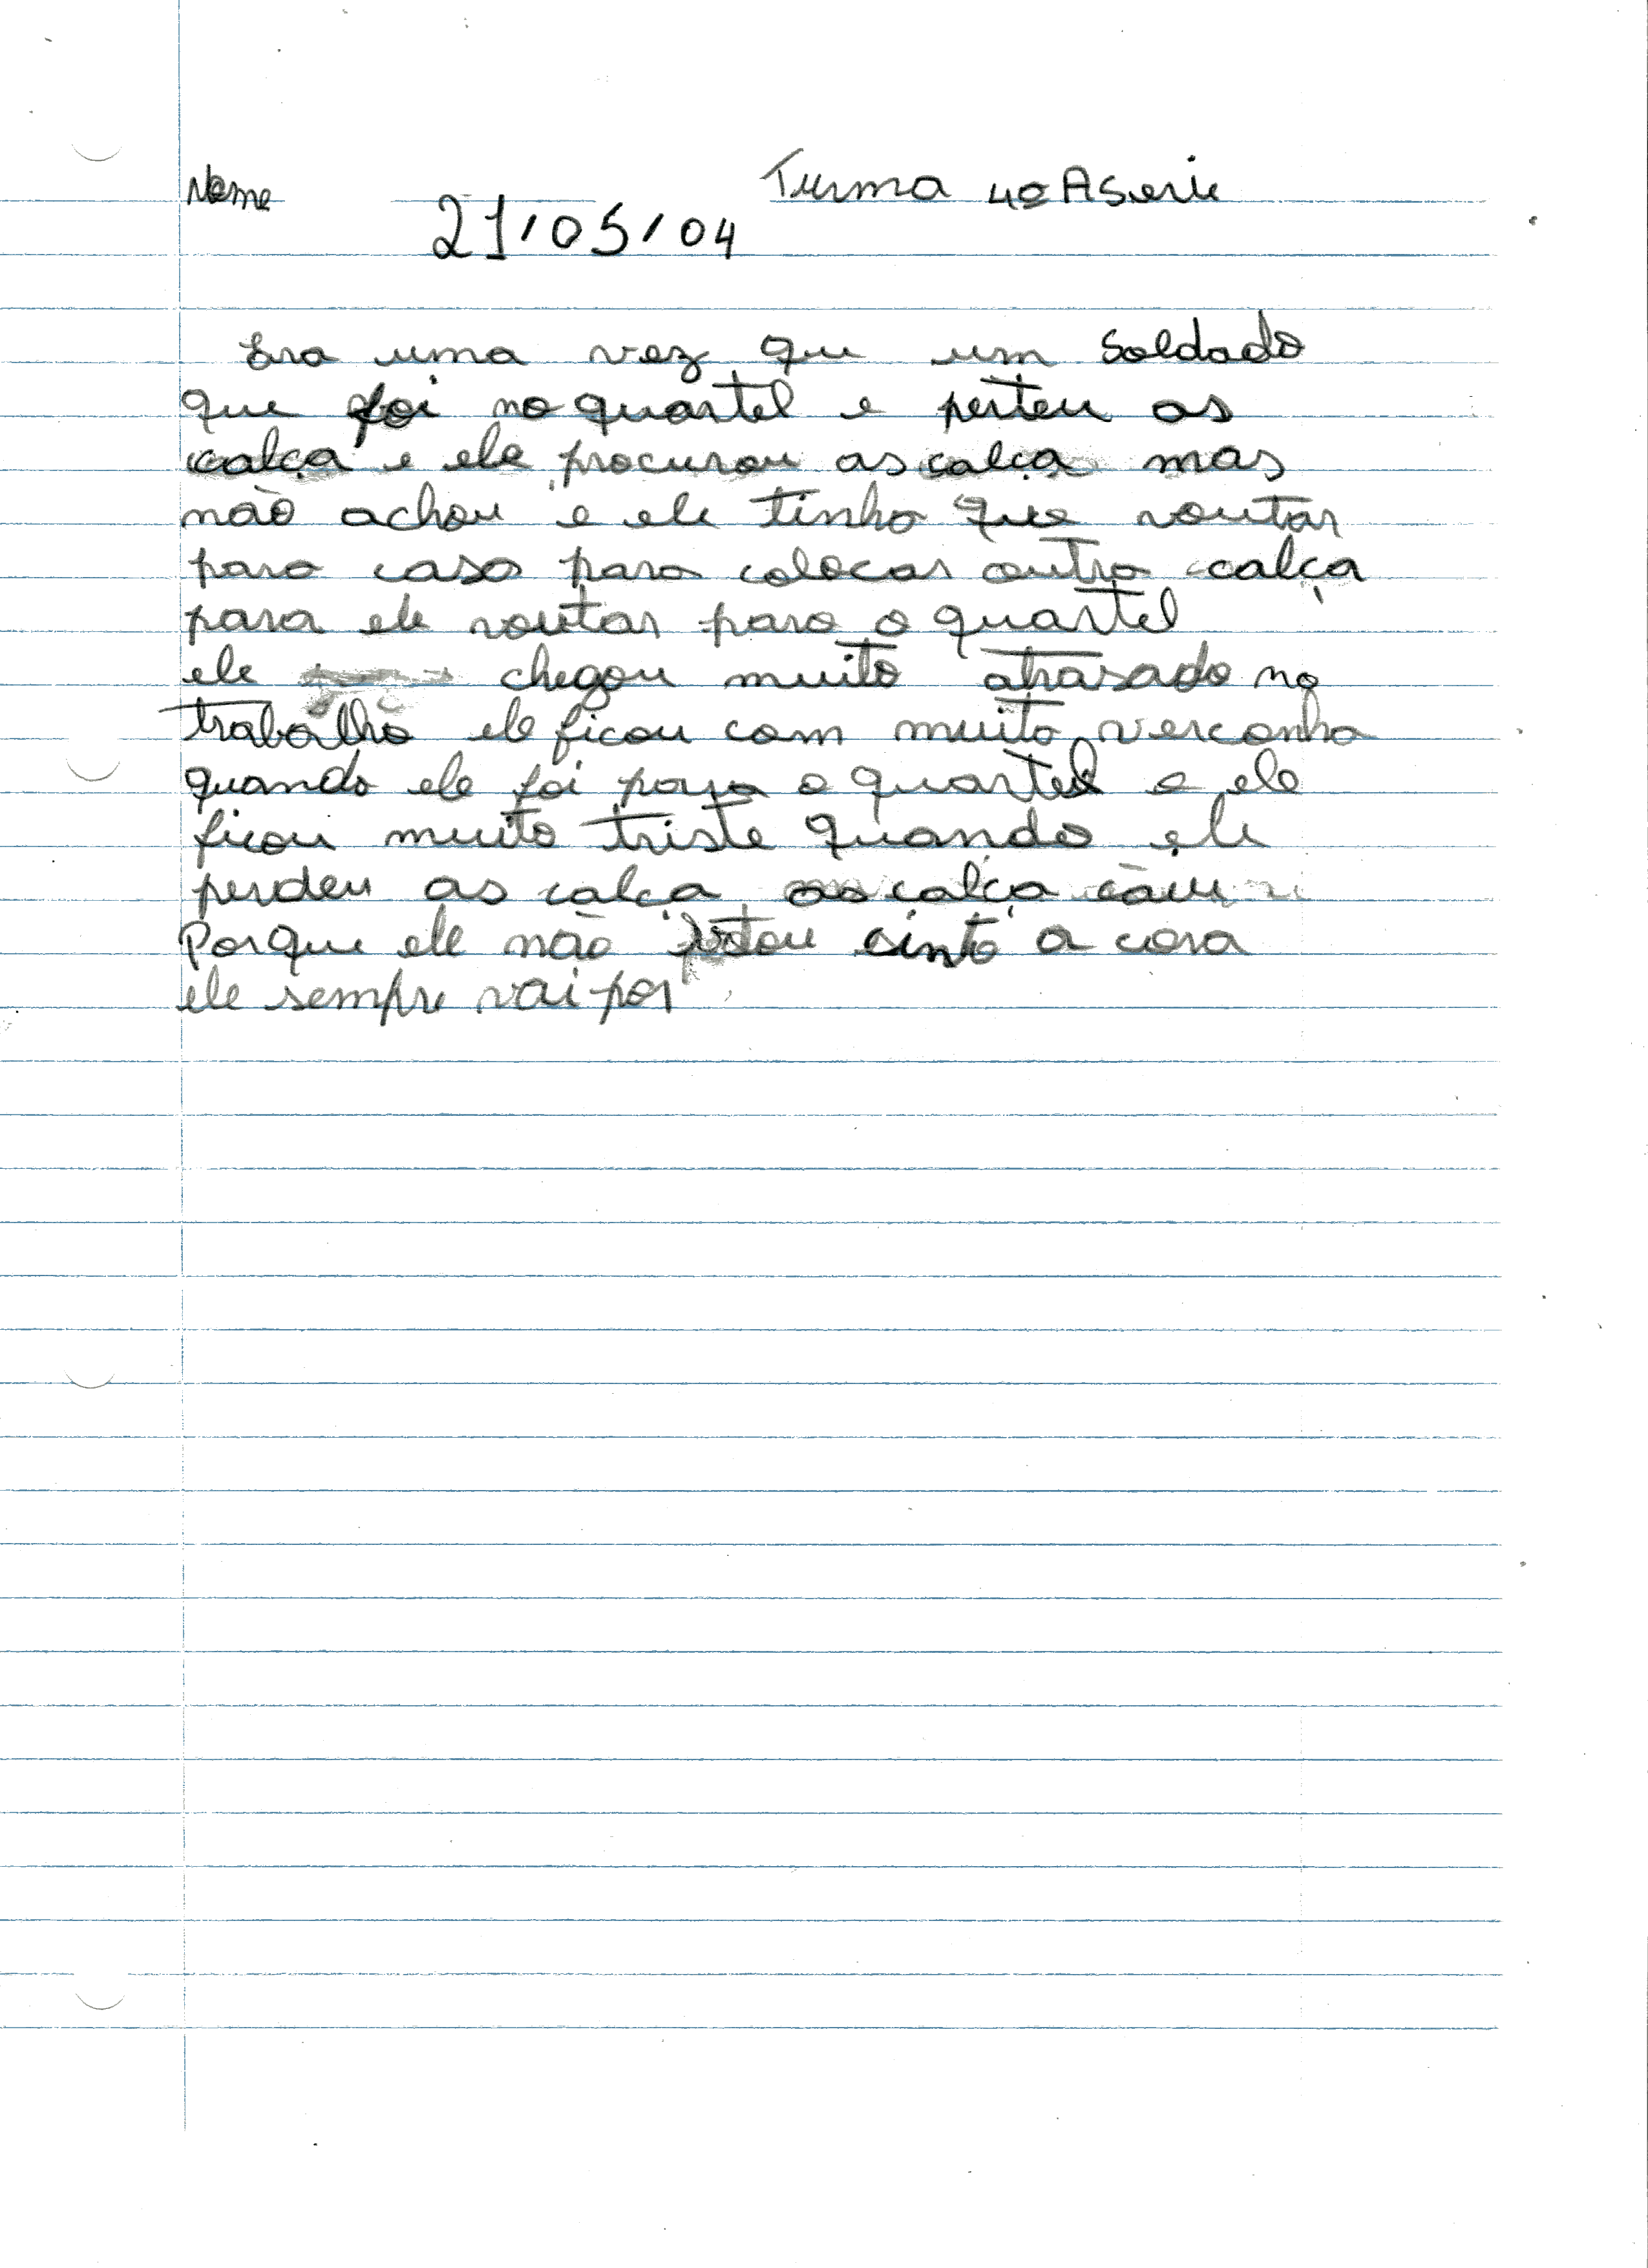 Nome Turma 4ª A Serie
21/05/04
Era uma vez que um soldado
que foi no quartel e perteu as
calça e ele procurou as calça mas
não achou e ele tinha que voutar
para casa para colocar outra calça
para ele voutar para o quartel
ele chegou muito atrasado no
trabalho ele ficou com muito verconha
quando ele foi para o quartel e ele
ficou muito triste quando ele
perdeu as calça as calça caiu
Porque ele não botou cinto a cora
ele sempre vai por